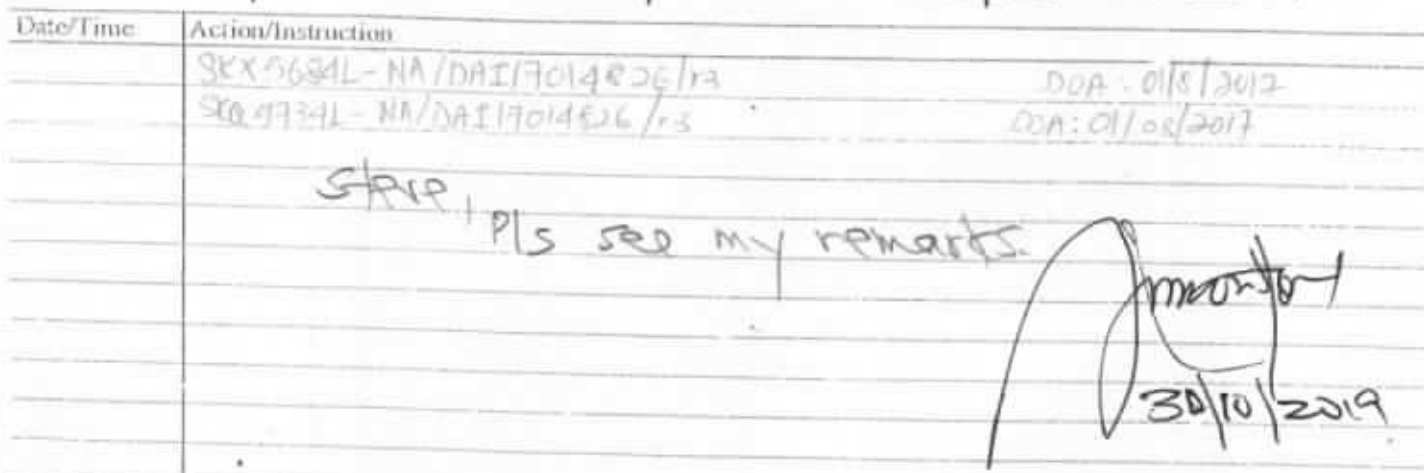 Date/Time Action/Instruction
SKX5684L - NA/DAI17014826/r3 DOA: 01/8/2017
SKQ9734L - NA/DAI17014826/r3 DOA: 01/08/2017
Steve,
Pls see my remarks.
30/10/2019